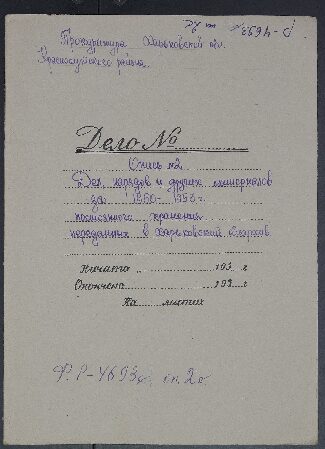 Р-4693
Прокуратура Харьковской обл.
Краснокутского района
Дело №
Опись №2
Дел, нарядов и других материалов
за 1950-1953 г.
постоянного хранения
переданных в Харьковский облархив
Начато 193 г
Окончено 193 г
На листах
Ф.Р-4693, оп.2